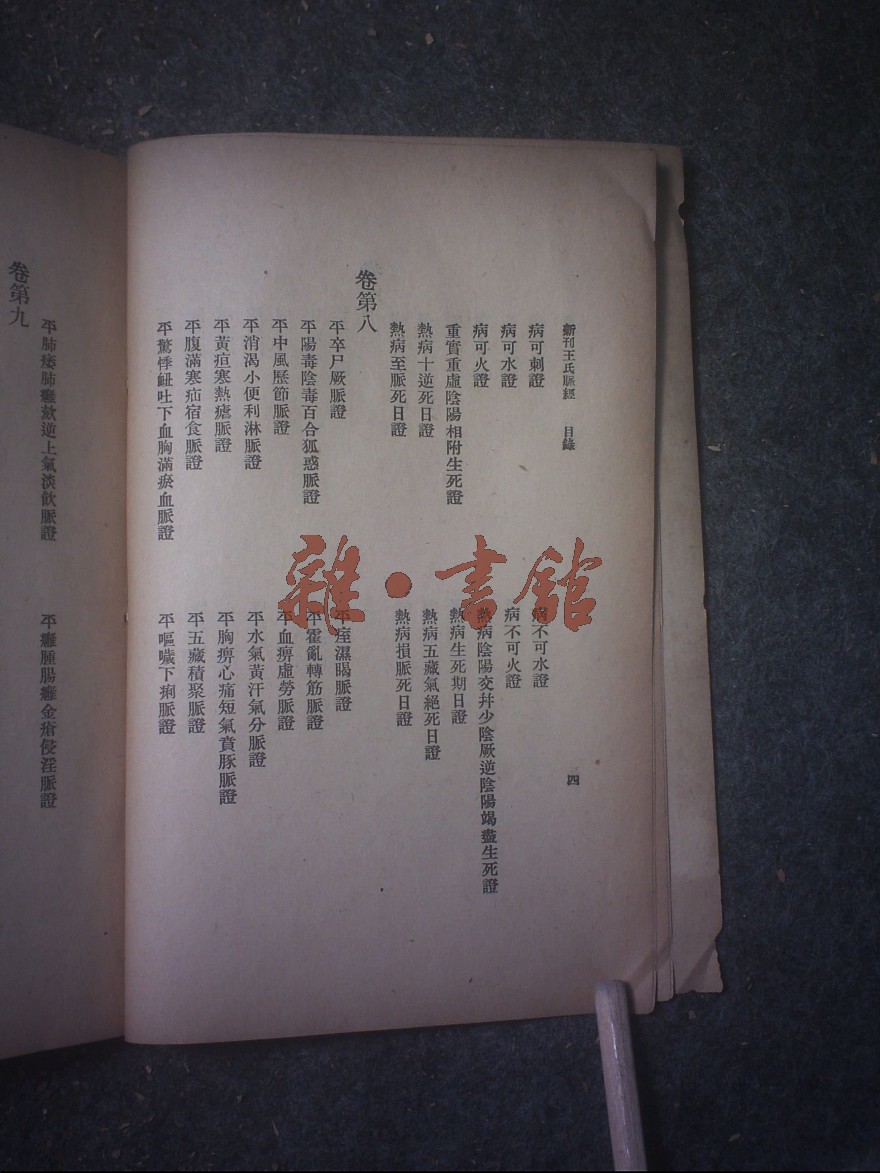 新刊王氏脈經 目錄 四
病可刺證 病不可水證
病可水證 病不可火證
病可火證 熱病陰陽交幷少陰厥逆陰陽竭盡生死證
重實重虛陰陽相附生死證 熱病生死期日證
熱病十逆死日證 熱病五藏氣絕死日證
熱病至脈死日證 熱病損脈死日證
卷第八
平卒尸厥脈證 平痓濕暍脈證
平陽毒陰毒百合狐惑脈證 平霍亂轉筋脈證
平中風歷節脈證 平血痹虛勞脈證
平消渴小便利淋脈證 平水氣黃汗氣分脈證
平黃疸寒熱瘧脈證 平胸痹心痛短氣賁豚脈證
平腹滿寒疝宿食脈證 平五藏積聚脈證
平驚悸衄吐下血胸滿瘀血脈證 平嘔噦下痢脈證
平肺痿肺癰欬逆上氣淡飲脈證 平癰腫腸癰金瘡侵淫脈證
卷第九
雜·書館